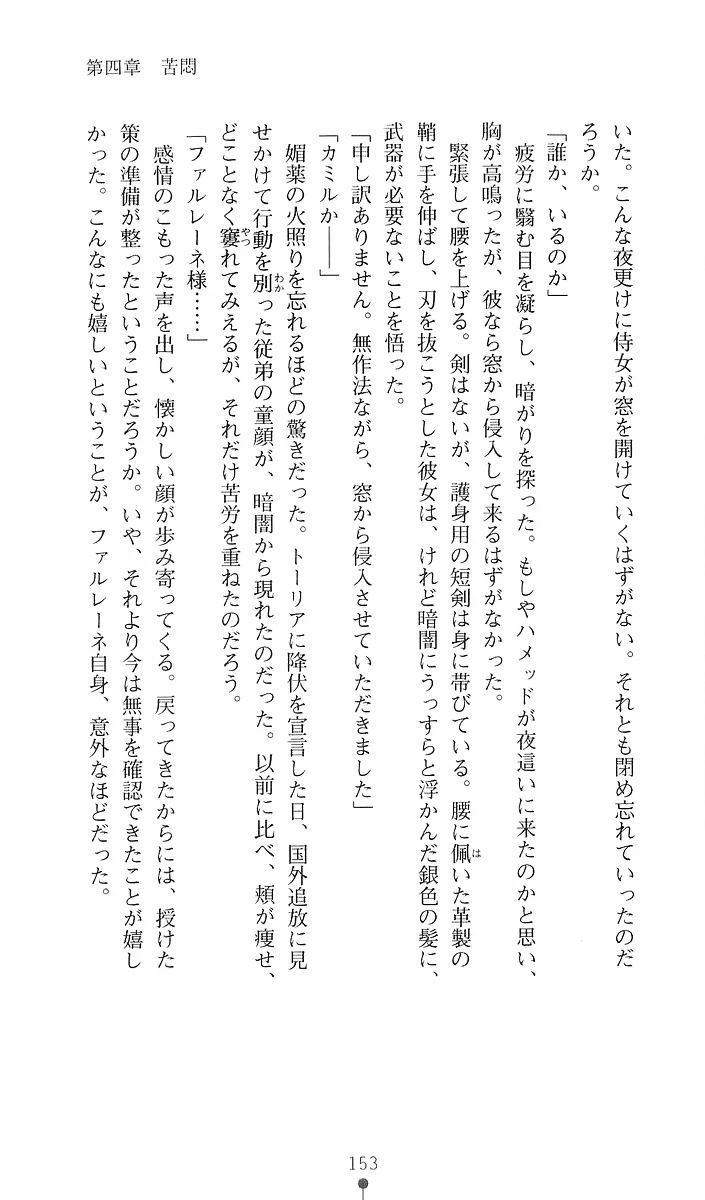 第四章　苦悶
いた。こんな夜更けに侍女が窓を開けていくはずがない。それとも閉め忘れていったのだ
ろうか。
「誰か、いるのか」
疲労に翳む目を凝らし、暗がりを探った。もしやハメッドが夜這いに来たのかと思い、
胸が高鳴ったが、彼なら窓から侵入して来るはずがなかった。
緊張して腰を上げる。剣はないが、護身用の短剣は身に帯びている。腰に佩はいた革製の
鞘に手を伸ばし、刃を抜こうとした彼女は、けれど暗闇にうっすらと浮かんだ銀色の髪に、
武器が必要ないことを悟った。
「申し訳ありません。無作法ながら、窓から侵入させていただきました」
「カミルか――」
媚薬の火照りを忘れるほどの驚きだった。トーリアに降伏を宣言した日、国外追放に見
せかけて行動を別わかった従弟の童顔が、暗闇から現れたのだった。以前に比べ、頬が痩せ、
どことなく窶やつれてみえるが、それだけ苦労を重ねたのだろう。
「ファルレーネ様……」
感情のこもった声を出し、懐かしい顔が歩み寄ってくる。戻ってきたからには、授けた
策の準備が整ったということだろうか。いや、それより今は無事を確認できたことが嬉し
かった。こんなにも嬉しいということが、ファルレーネ自身、意外なほどだった。
153